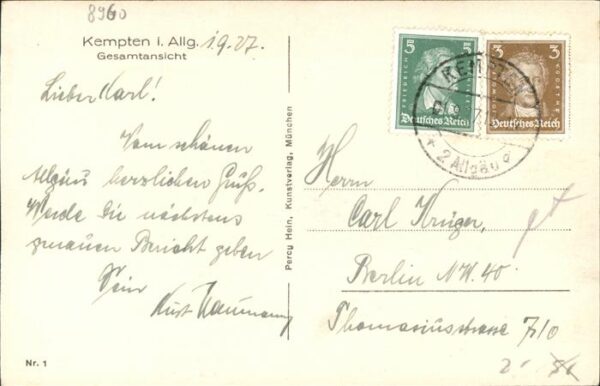 8960
Kempten i. Allg. 1.9.27.
Gesamtansicht
Lieber Karl!
Vom schönen
Allgäu herzlichen Gruß.
Werde Dir nächstens
genauen Bericht geben
Dein
Kurt Naumann
Percy Hein, Kunstverlag, München
5 5
FRIEDRICH
Deutsches Reich
3 3
GOETHE
Deutsches Reich
KEMPTEN
* 2 Allgäu
Herrn
Carl Krüger,
Berlin N.W. 40
Thomasiusstrasse
Nr. 1